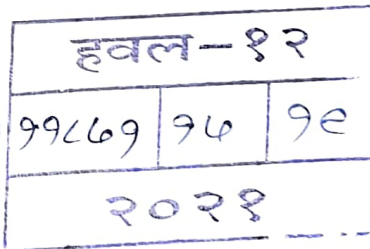 हवल-१२
११८७१ १७ १९
२०२१